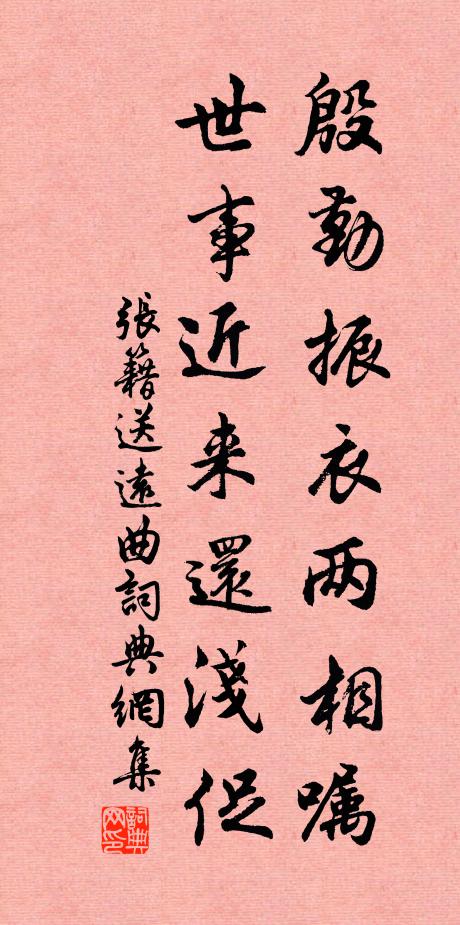 殷勤振衣两相嘱
世事近来還淺促
張籍送遠曲詞典網集
詞典网印